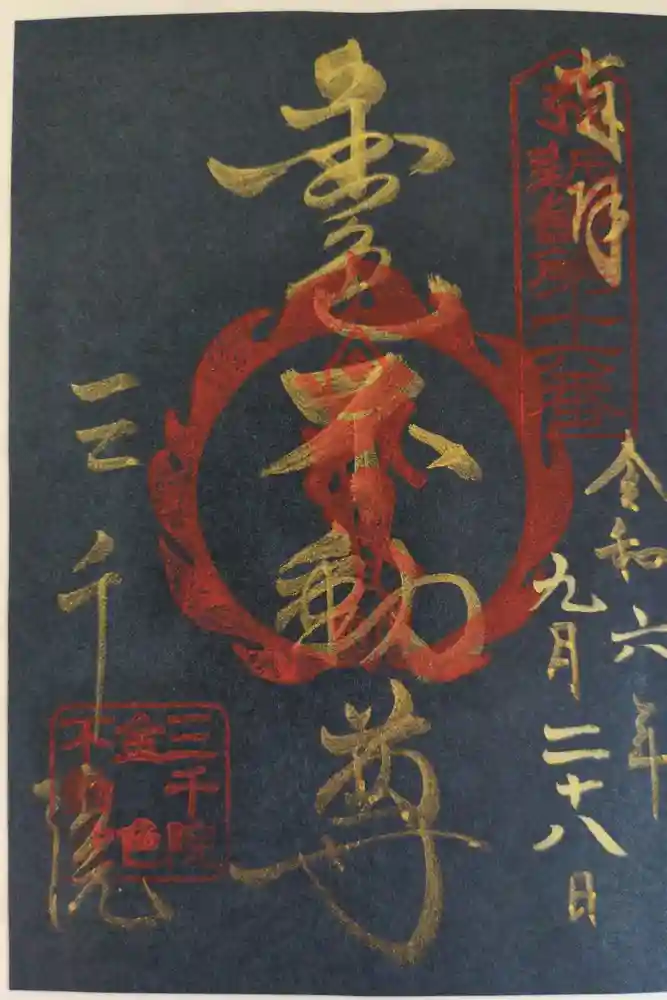 奉拝
令和六年
九月二十八日
金色不動尊
三千院
三千院
金色
不